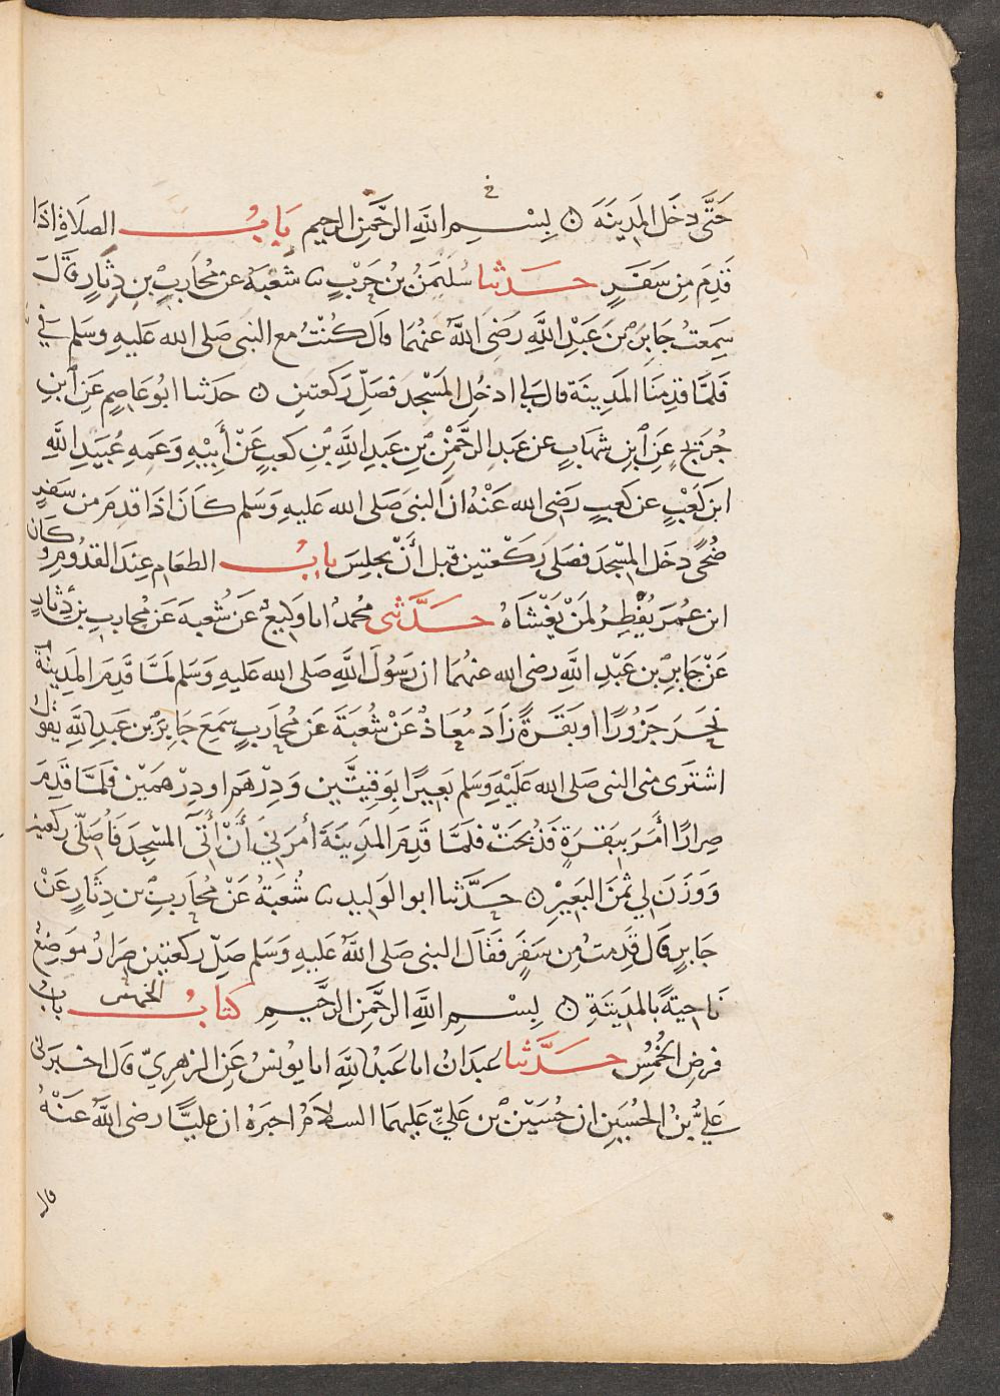 حَتَّى دخَل المَدِينَهَ ۞ بِسْــمِ اللهِ الرَّحْمٰنِ الرحيم بَابُ الصلَاةِ اذَا
قَدِمَ مِن سَفَرٍ حَــدثنا سُلَيمَنُ بْنُ حَرْبٍ نا شعْبَهُ عن مُحَاربِ بْنِ دِثارٍ قَالَ
سَمِعتُ جَابِرَ بْنَ عَبْدِ اللهِ رَضِىَ اللهُ عَنْهُمَا قال كُنْتُ مع النبى صَلى الله عَليهِ وسَلم فى
فَلمَّا قدِمنَا المَدِينَة قال لِى ادخُلِ المَسْجِدَ فصَلِّ رَكعتين ۞ حَدثنا ابُو عَاصِمٍ عَنِ ابنِ
جُرَيْجٍ عَنِ ابْنِ شِهَابٍ عن عَبدِ الرَّحْمٰنِ بْنِ عَبدِ اللهِ بْنِ كعبٍ عَنْ أَبِيْهِ وَعَمِهِ عُبَيدِ اللهِ
ابنِ كَعْبٍ عن كَعبٍ رَضى الله عَنْهُ انَّ النبىَ صَلى الله عَليهِ وَسَلم كَانَ اذَا قدِمَ من سَفرٍ
ضُحًى دخَل المسْجدَ فصَلى رَكْعتين قبل أَنْ يجلِسَ بابُ الطعَام عِندَ القدُومِ وكَان
ابن عُمرَ يُفْطِرُ لمَنْ يَغْشَاهُ حَــدَّثنى مُحمدٌ انا وَكيعٌ عَن شُعبهَ عَن مُحاربِ بْنِ دِثارٍ
عَنْ جَابِرِ بْنِ عَبْدِ اللهِ رضى الله عنهُمَا ان رَسُولَ اللهِ صَلى الله عَليهِ وَسَلم لمَّا قَدِمَ المَدِينَة
نَحَرَ جَزُورًا اوبَقَرَةً زَادَ مُعَاذٌ عَنْ شُعْبَةَ عَن مُحَاربٍ سَمِعَ جَابِرَ بْنَ عَبدِ اللهِ يقُول
اشتَرَى مِنى النبى صَلى الله عَلَيْهِ وَسَلم بَعِيرًا بِوَقِيتَّين وَدِرْهَم اودِرْهَمَيْن فَلمَّا قَدِمَ
صِرارًا أَمَرَ بِبَقَرَةٍ فَذُبِحَتْ فلمَّا قَدِمَ المَدِينَةَ أَمرَنِى أَنْ أَتَى المسْجِدَ فَأُصَلِّى ركعتين
وَوَزَنَ لِى ثمنَ البَعِيْرِ ۞ حَدَّثنا ابو الوَلِيدِ نا شُعْبَةُ عَنْ مُحَاربِ بْنِ دِثَارٍ عَنْ
جَابِرٍ قَال قَدِمتُ مِن سَفَرٍ فَقالَ النبى صَلى اللهُ عَليهِ وَسَلم صَلِّ رَكعتين صِرَارُ مَوضِعٌ
نَاحِيَةً بالمَدِينَةِ ۞ بِسْــمِ اللهِ الرَّحْمٰنِ الرَّحِيــمِ كتَابُ الخمْس بابُ
فرضِ الخُمْسِ حَــدَّثنا عَبدَانُ انا عَبدُ اللهِ انا يُونسُ عَنِ الزهرِىِّ قَال اخبَرَنى
عَلِىُّ بْنُ الحُسَينِ ان حُسَيْنَ بْن عَلِىٍّ عَليهمَا السلامُ اخبَرَهُ ان عليًّا رضى اللهُ عَنْهُ
قال